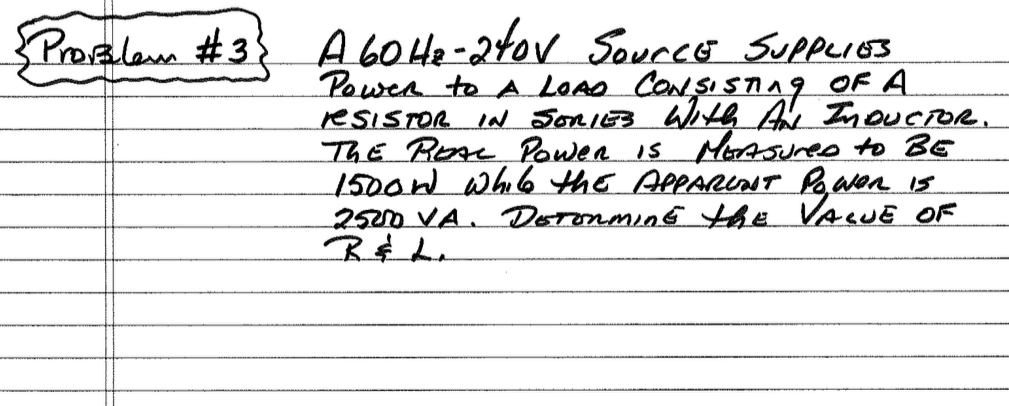 Problem #3 A 60 Hz-240V SOURCE SUPPLIES
Power to A LOAD CONSISTING OF A
RESISTOR IN SERIES With AN INDUCTOR.
THE REAL Power IS MEASURED to BE
1500W While the APPARENT POWER IS
2500 VA. DETERMINE the VALUE OF
R & L.